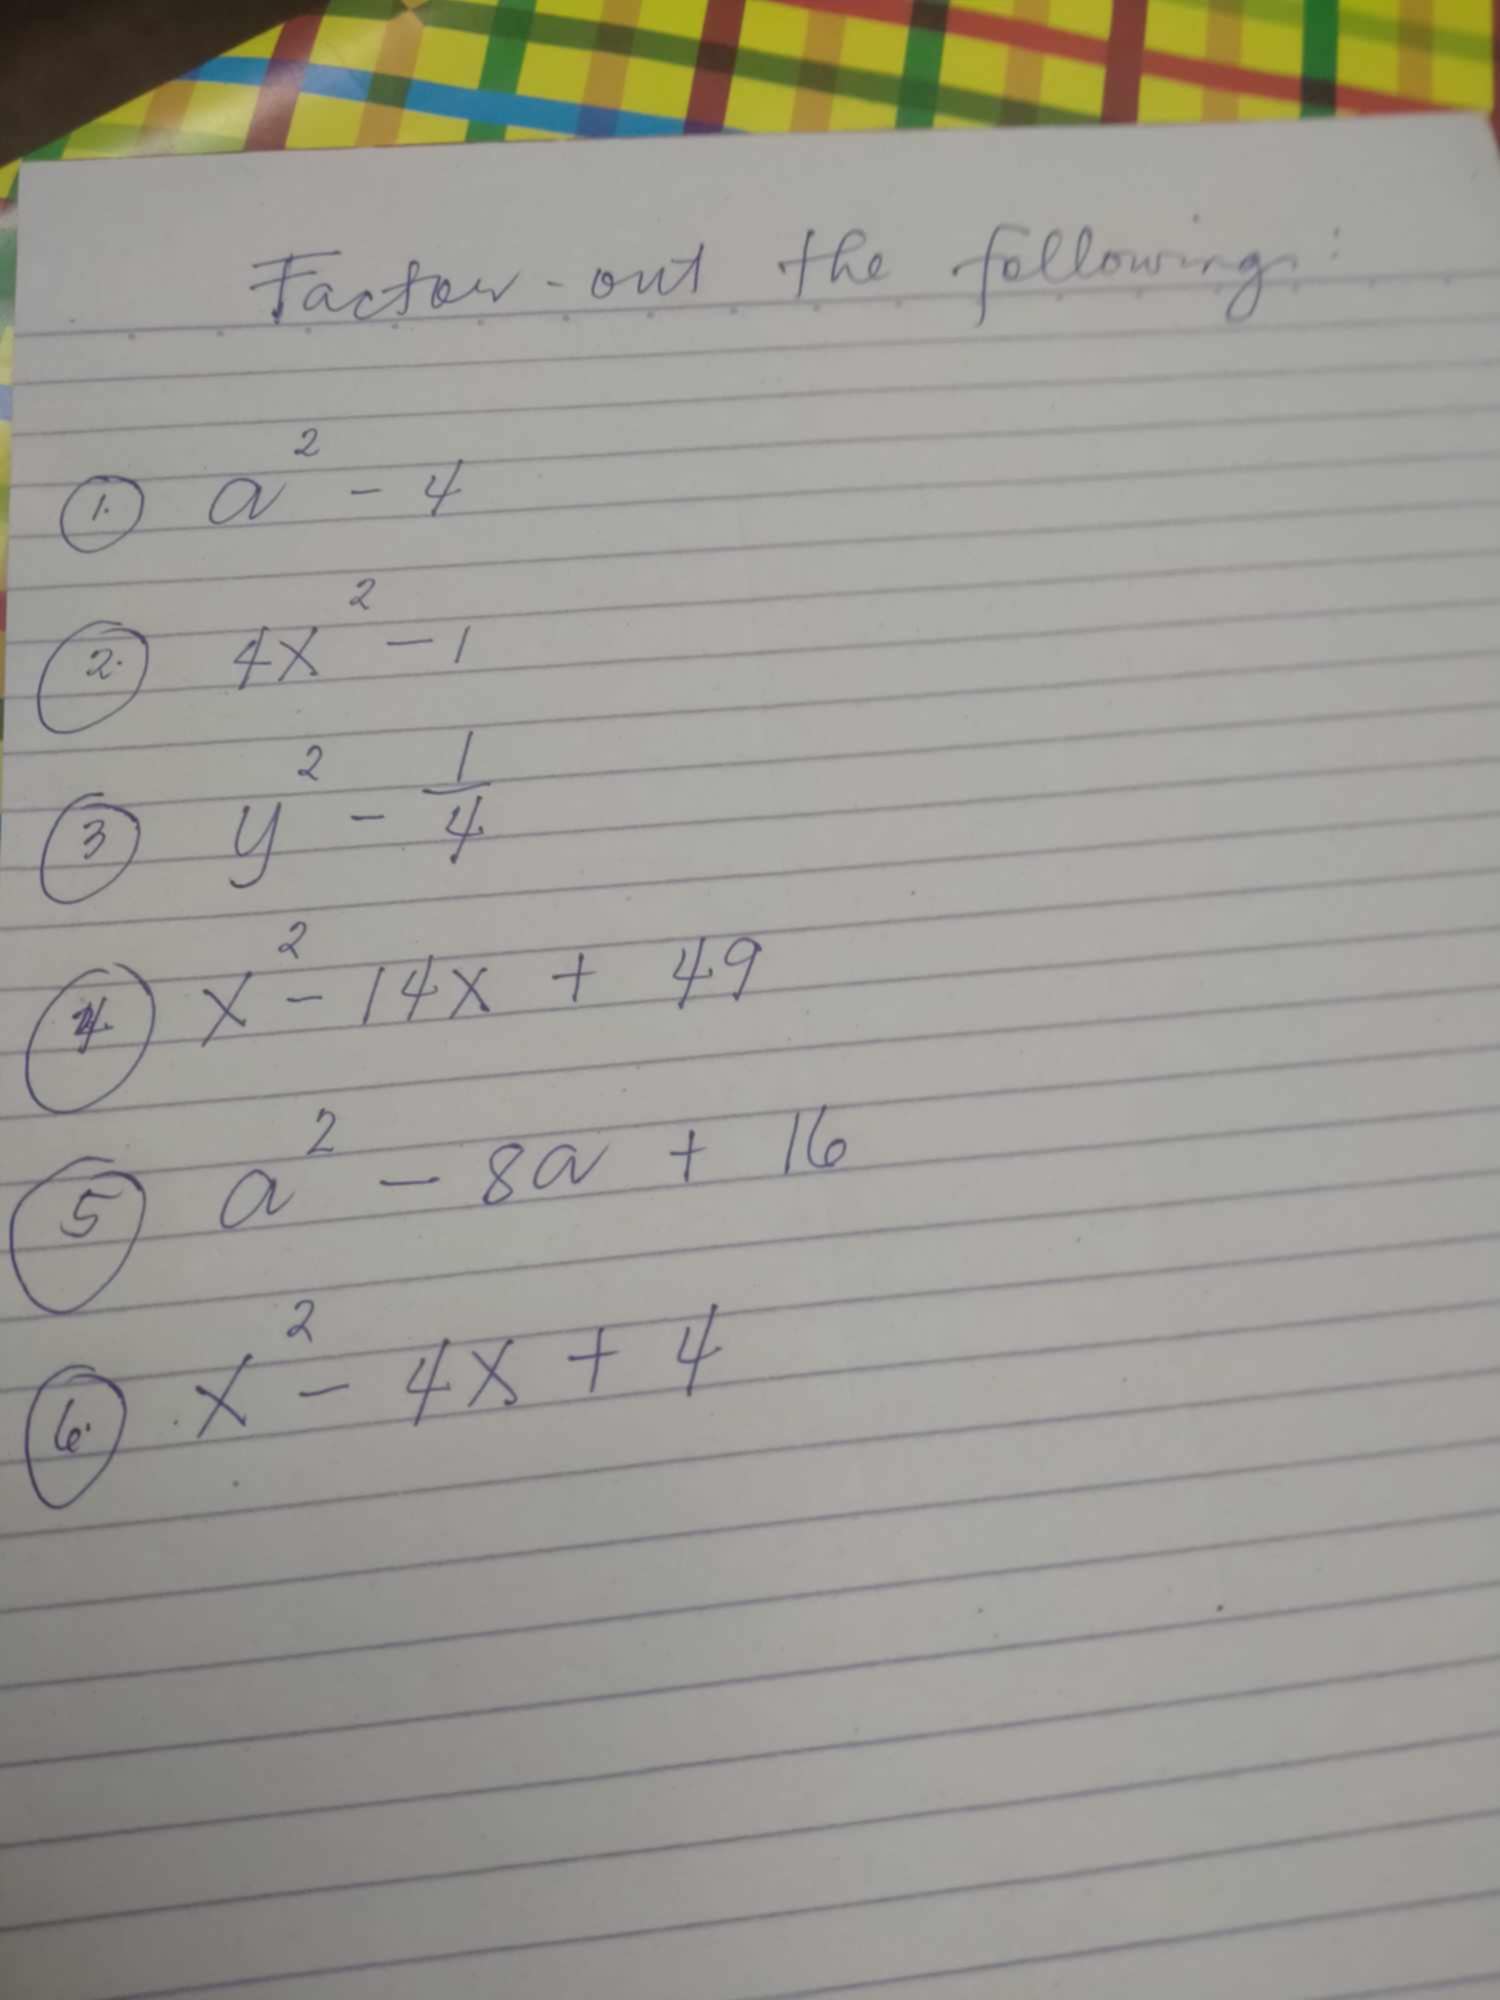 Factor-out the following:
1. a² - 4
2. 4x² - 1
3 y² - 1/4
4 x² - 14x + 49
5 a² - 8a + 16
6. x² - 4x + 4